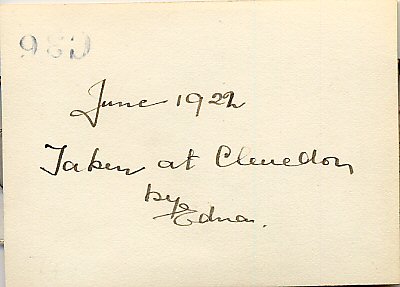 June 1922
Taken at Clevedon
by
Edna.